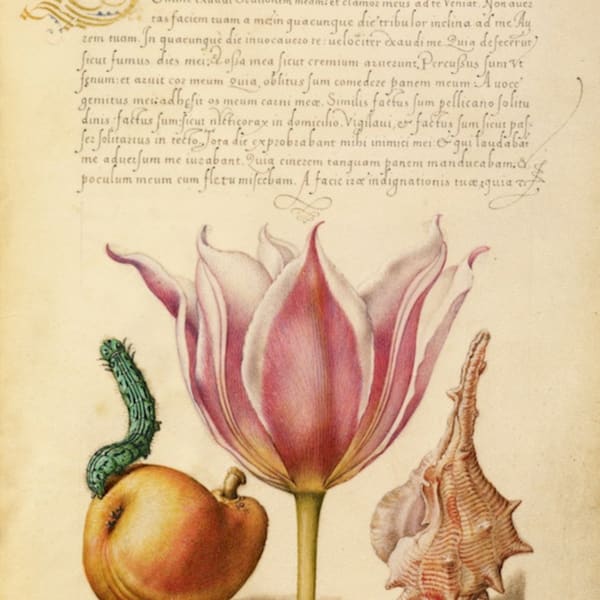 Domine exaudi orationem meam: et clamor meus ad te veniat. Non aver
tas faciem tuam a me: in quacunque die tribulor inclina ad me Au
rem tuam. In quacunque die invocavero te: velociter exaudi me. Quia defecerūt
sicut fumus dies mei: & ossa mea sicut cremium aruerunt. Percussus sum Vt
fęnum: et aruit cor meum quia oblitus sum comedere panem meum. A voce
gemitus mei: adhesit os meum carni meæ. Similis factus sum pellicano solitu
dinis: factus sum sicut nicticorax in domicilio. Vigilavi, & factus sum sicut pas-
ser solitarius in tecto. Tota die exprobrabant mihi inimici mei: & qui laudabāt
me adversum me iurabant. Quia cinerem tanquam panem manducabam. &
poculum meum cum fletu miscebam. A facie iræ indignationis tuæ: quia